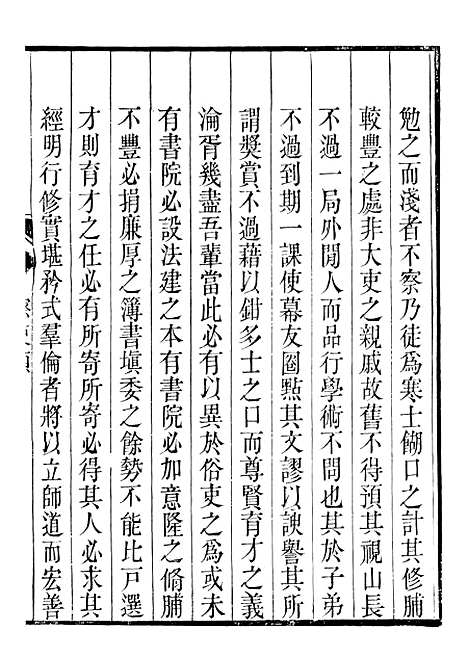 勉之而淺者不察乃徒爲寒士餬口之計其修脯
較豐之處非大吏之親戚故舊不得預其視山長
不過一局外閒人而品行學術不問也其於子弟
不過到期一課使幕友圈點其文謬以諛譽其所
謂獎賞不過藉以鉗多士之口而尊賢育才之義
淪胥幾盡吾輩當此必有以異於俗吏之爲或未
有書院必設法建之本有書院必加意隆之脩脯
不豐必捐廉厚之簿書塡委之餘勢不能比戸選
才則育才之任必有所寄所寄必得其人必求其
經明行修實堪矜式羣倫者將以立師道而宏善